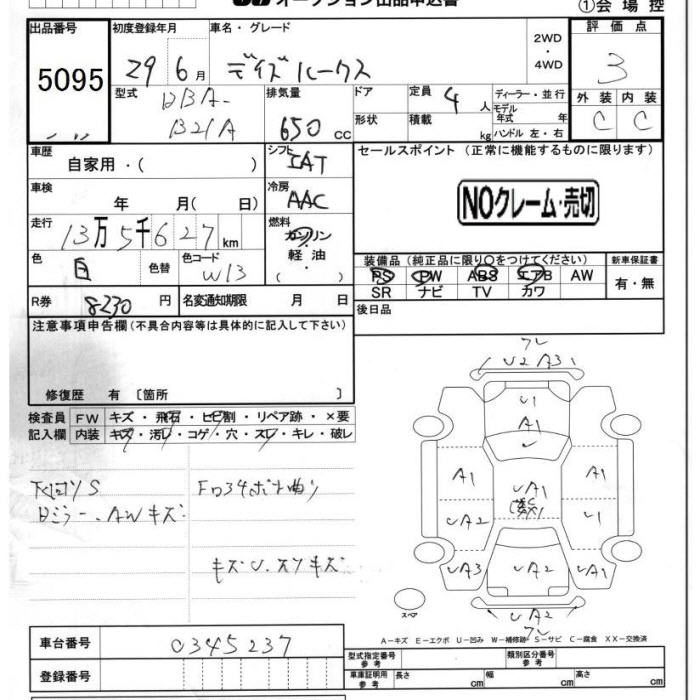 オークション出品申込書
①会場控
出品番号 初度登録年月 車名・グレード 2WD ・ 4WD 評価点
5095 29 6月 デイズルークス 3
型式 排気量 ドア 定員 ディーラー・並行 外装 内装
DBA- B21A 650 cc 4人 モデル年式 年 C C
形状 積載 kg ハンドル 左・右
車歴 シフト セールスポイント (正常に機能するものに限ります)
自家用・( ) IAT
車検 冷房 NOクレーム・売切
年 月( 日) AAC
走行 燃料
13万5千627km ガソリン
軽油
( )
色 色替 色コード 装備品(純正品に限り○をつけてください) 新車保証書
白 W13 PS PW ABS エアB AW 有・無
SR ナビ TV カワ
R券 8230円 名変通知期限 月 日 後日品
注意事項申告欄(不具合内容等は具体的に記入して下さい)
修復歴 有〔箇所 〕
検査員 FW キズ・飛石・ヒビ割・リペア跡・×要
記入欄 内装 キズ・汚レ・コゲ・穴・スレ・キレ・破レ
下回りS
ミラー、AWキズ
キズU、スリキズ
U2 A3
U1
A1
U
A1 UA1 A1
UA2 U1
UA3 UA2 A1
UA2
スペア
A－キズ E－エクボ U－凹み W－補修跡 S－サビ C－腐食 XX－交換済
車台番号 0345237
登録番号
型式指定番号 参考 類別区分番号 参考
車庫証明用 参考 長さ cm 幅 cm 高さ cm